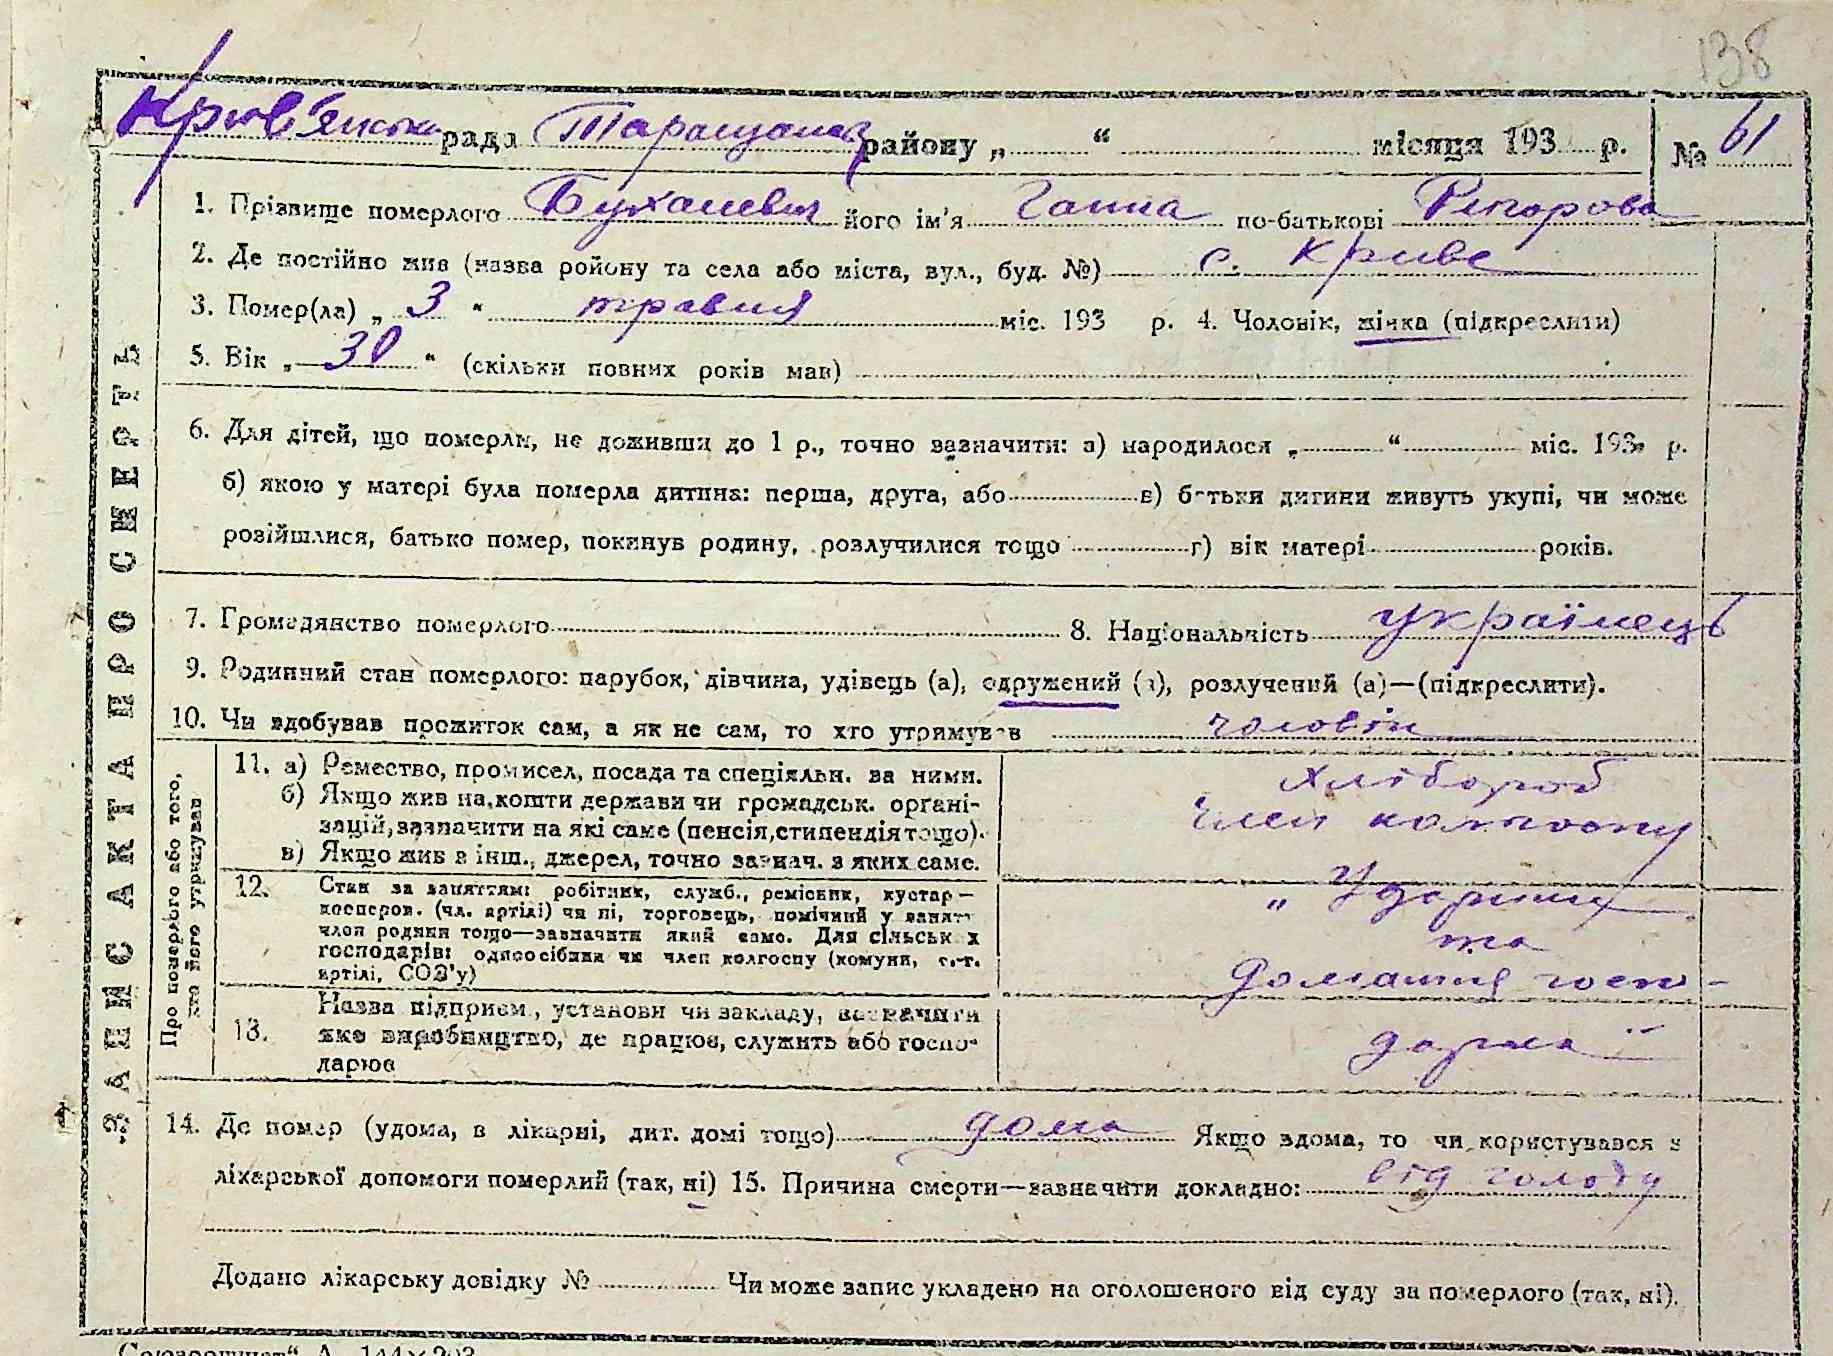 138
Крив'янська рада Таращанськ району „ “ місяця 193 р. № 61
ЗАПИС АКТА ПРО СМЕРТЬ
1. Прізвище померлого Буханевич його ім'я Ганна по-батькові
2. Де постійно жив (назва ройону та села або міста, вул., буд. №) с. Криве
3. Помер(ла) „ 3 “ травня міс. 193 р. 4. Чоловік, жінка (підкреслити)
5. Вік „ 30 “ (скільки повних років мав)
6. Для дітей, що померли, не доживши до 1 р., точно зазначити: а) народилося „ “ міс. 193 р.
б) якою у матері була померла дитина: перша, друга, або в) батьки дитини живуть укупі, чи може
розійшлися, батько помер, покинув родину, розлучилися тощо г) вік матері років.
7. Громадянство померлого 8. Національність українець
9. Родинний стан померлого: парубок, дівчина, удівець (а), одружений (а), розлучений (а)—(підкреслити).
10. Чи здобував прожиток сам, а як не сам, то хто утримував чоловік
Про померлого або того, хто його утримував
11. а) Ремество, промисел, посада та спеціяльн. за ними. хлібороб
б) Якщо жив на кошти держави чи громадськ. органі- член колгоспу
зацій, зазначити на які саме (пенсія, стипендія тощо).
в) Якщо жив з інш., джерел, точно зазнач. з яких саме.
12. Стан за заняттям: робітник, служб., ремісник, кустар—
коопєров. (чл. артілі) чи ні, торговець, помічний у занятт
член родини тощо—зазначити який само. Для сільськ х та
господарів: одноосібник чи член колгоспу (комуни, с.-г. домашня госпо-
артілі, СОЗ'у)
13. Назва підприєм., установи чи закладу, зазначити
яке виробництво, де працює, служить або госпо-
дарює
14. Де помер (удома, в лікарні, дит. домі тощо) дома Якщо вдома, то чи користувався з
лікарської допомоги померлий (так, ні) 15. Причина смерти—зазначити докладно: від голоду
Додано лікарську довідку № Чи може запис укладено на оголошеного від суду за померлого (так, ні).
А 144×203